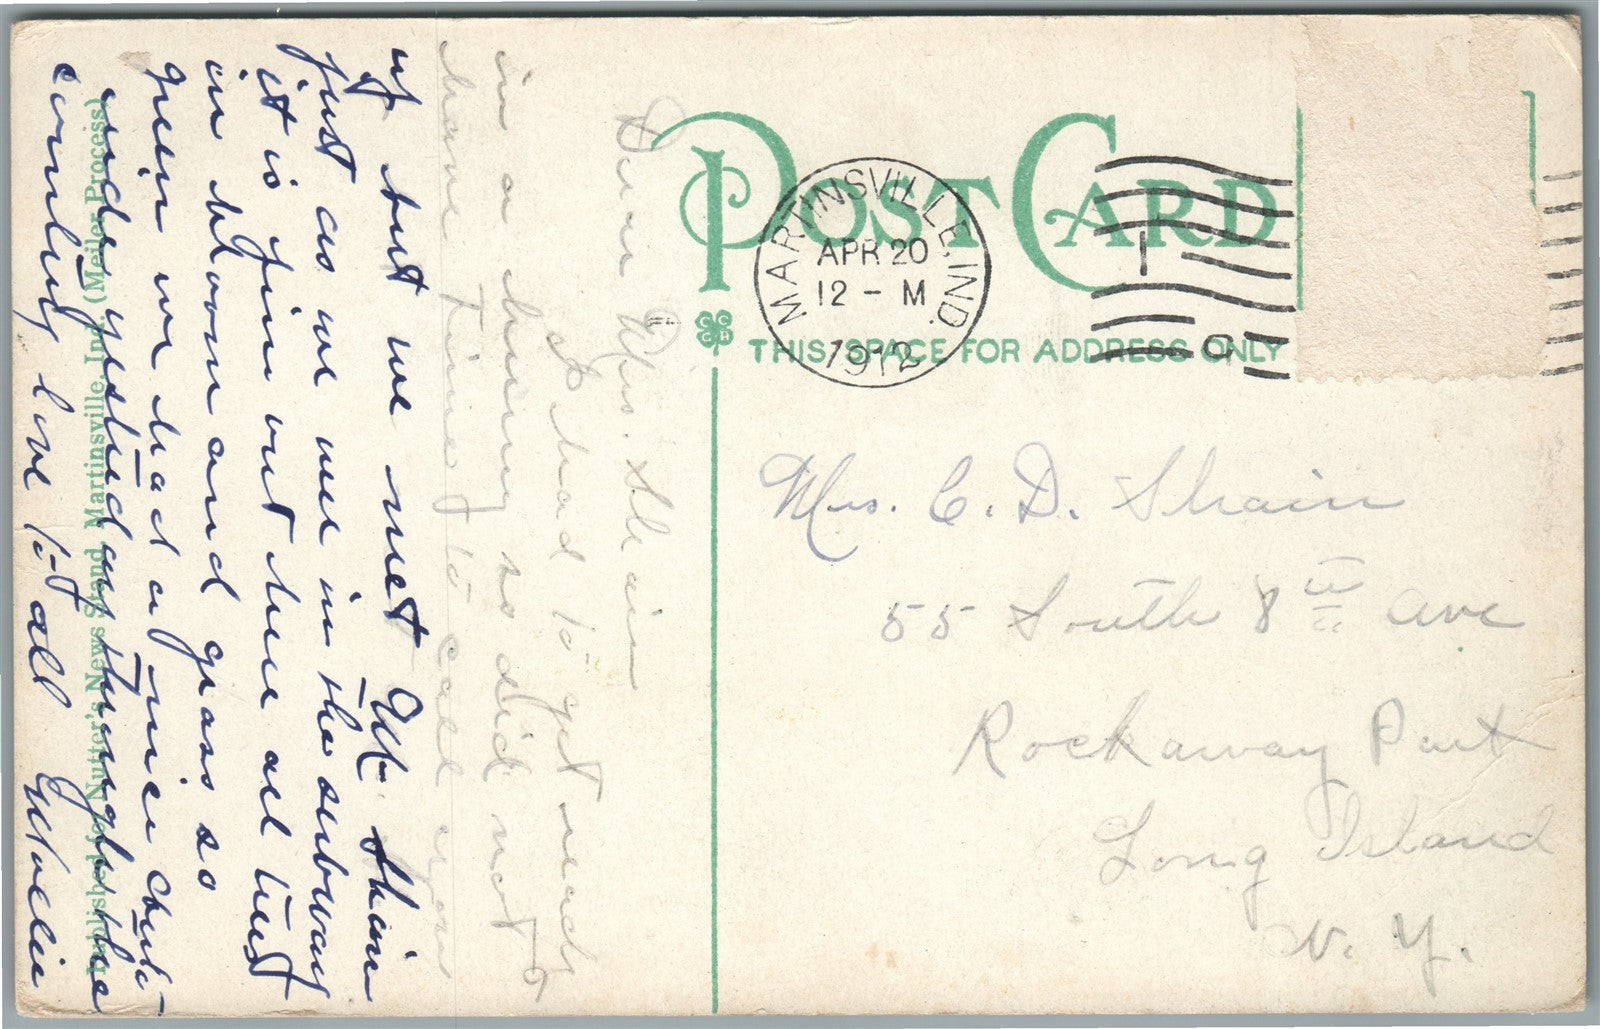 POST CARD
THIS SPACE FOR ADDRESS ONLY
MARTINSVILLE, IND.
APR 20
12 - M
1912
Mrs. C. D. Shain
55 South 8th Ave
Rockaway Park
Long Island
N. Y.
Dear Mrs. Shain
I had to get ready
in a hurry so did not
have time to call you
up but we met Mr Shain
just as we were in the subway
it is fine out here all trees
in bloom and grass so
green we had a nice
ride yesterday through the
country love to all
Published for Nutter's News Stand, Martinsville, Ind. (Meiler Process)